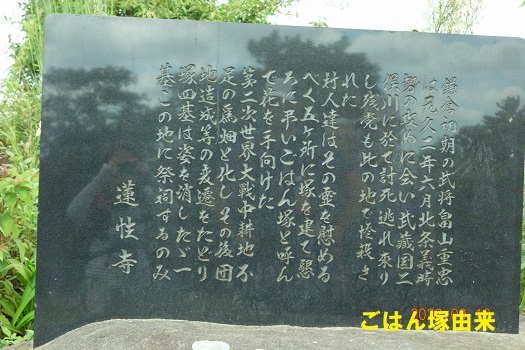 鎌倉初期の武将畠山重忠
は元久二年六月北条義時
勢の攻めに会い武蔵国二
俣川に於て討死逃れ來り
し残党も此の地で惨殺さ
れた
村人達はその霊を慰める
べく五ヶ所に塚を建て懇
ろに弔いごはん塚と呼ん
で花を手向けた
第二次世界大戦中耕地不
足の爲畑と化しその後団
地造成等の変遷をたどり
塚四基は姿を消したゞ一
基この地に祭祠するのみ
蓮性寺
ごはん塚由来